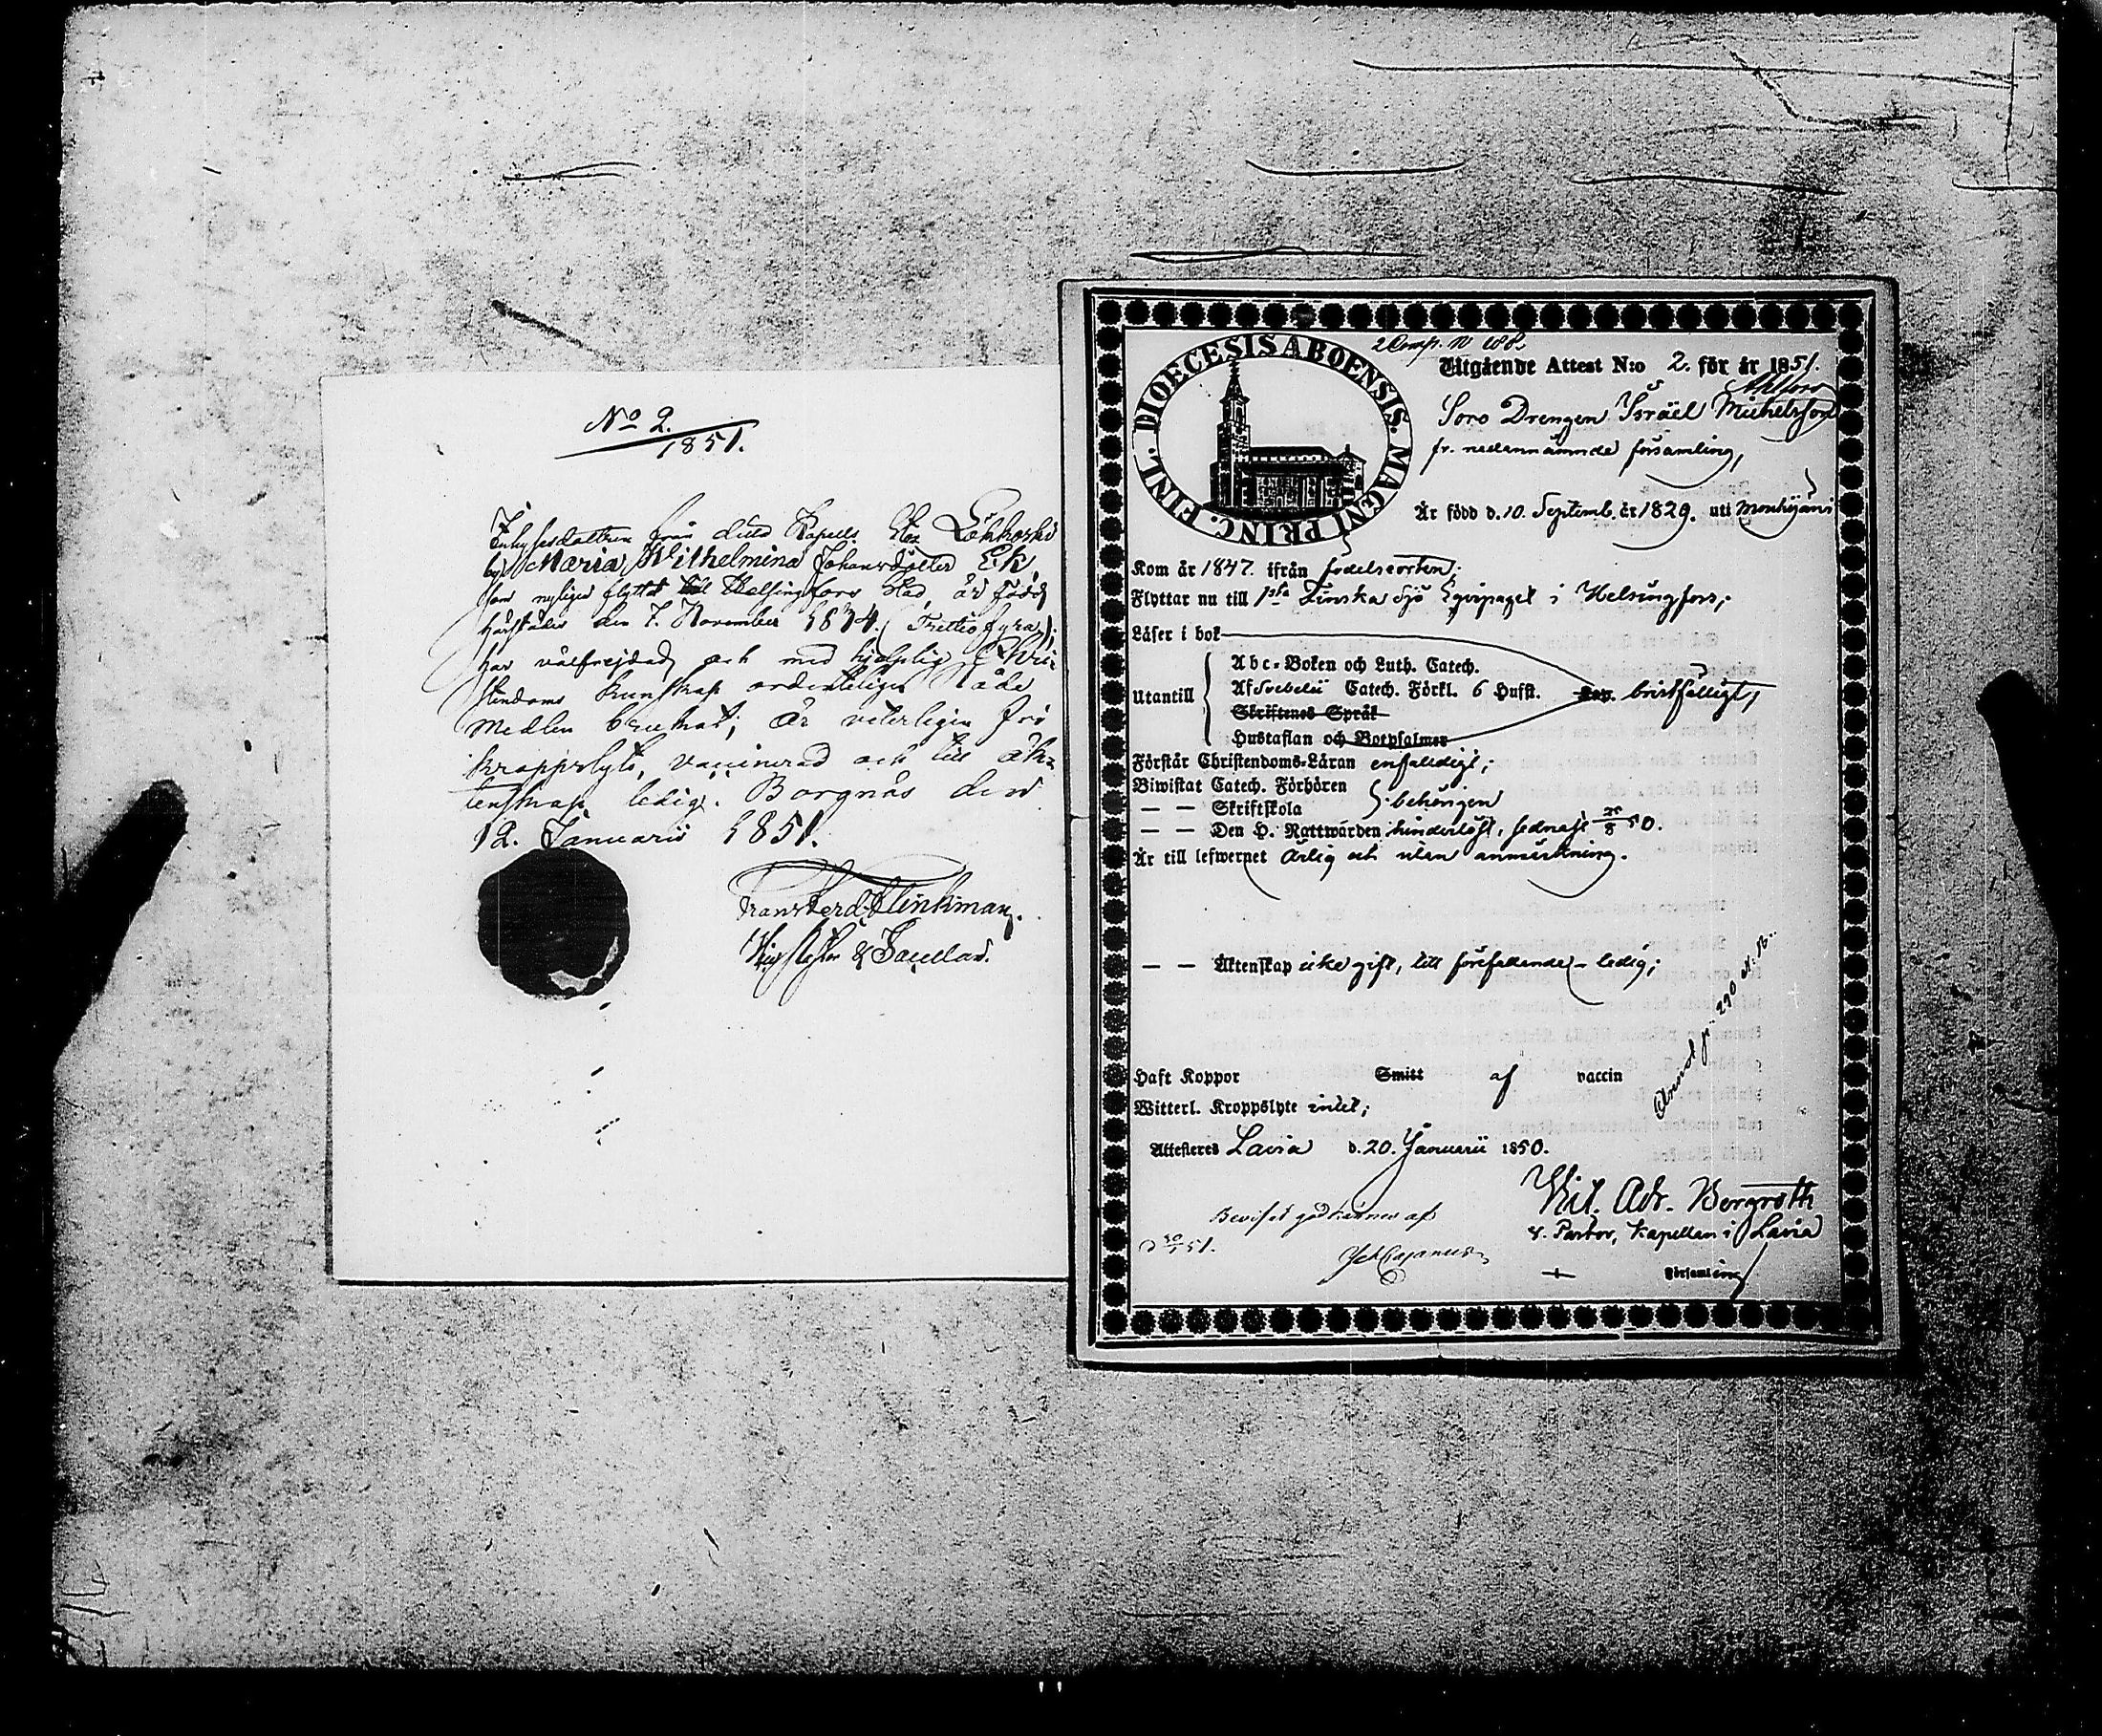 No 2.
1851.
Inhysesdottren från detta Kapells
by Maria Wilhelmina Johansdotter Ek,
som nyligen flyttat till Helsingfors stad, är född
härstädes den 7. November 1834. (Trettiofyra);
har välfrejdad och med hjelplig Chri-
stendoms kunskap ordentligen Nåde
Medlen brukat; är veterligen fri
kroppslyte, vaccinerad och till äk-
tenskap ledig. Borgnäs den
12. Januarii 1851.
Frans Ferd. Flinkman.
DIOECESIS ABOENSIS. MAGNI PRINC. FINL.
2 Comp. N 188.
Utgående Attest N:o 2. för år 1851.
Soro Drengen Isräel Michelsson
fr. nedannämnde församling,
Är född d. 10. Septemb. år 1829. uti Mouhijärvi
Kom år 1847. ifrån födelseorten.
Flyttar nu till 1sta Finska Sjö Eqvipaget i Helsingfors;
Läser i bok
Utantill
Abc-Boken och Luth. Catech.
Af Svebelii Catech. Förkl. 6 Hufst. bristfälligt,
Skriftenes Språk
Hustaflan och Botpsalmer
Förstår Christendoms-Läran enfaldigt;
Biwistat Catech. Förhören
— — Skriftskola behörigen
— — Den H. Nattwarden hinderlöst, sednast 25/8 50.
Är till lefwernet ärlig och utan anmärkning.
— — Äktenskap icke gift, till förefallande – ledig;
Annot. p. 290 N. B.
Haft Koppor Smitt af vaccin
Witterl. Kroppslyte intet;
Attesteres Lavia d. 20. Januarii 1850.
Wil. Adr. Bergroth
v. Pastor, Kapellan i Lavia
Församling
Beviset godkännes af
d 30/1 51.
Cajanus